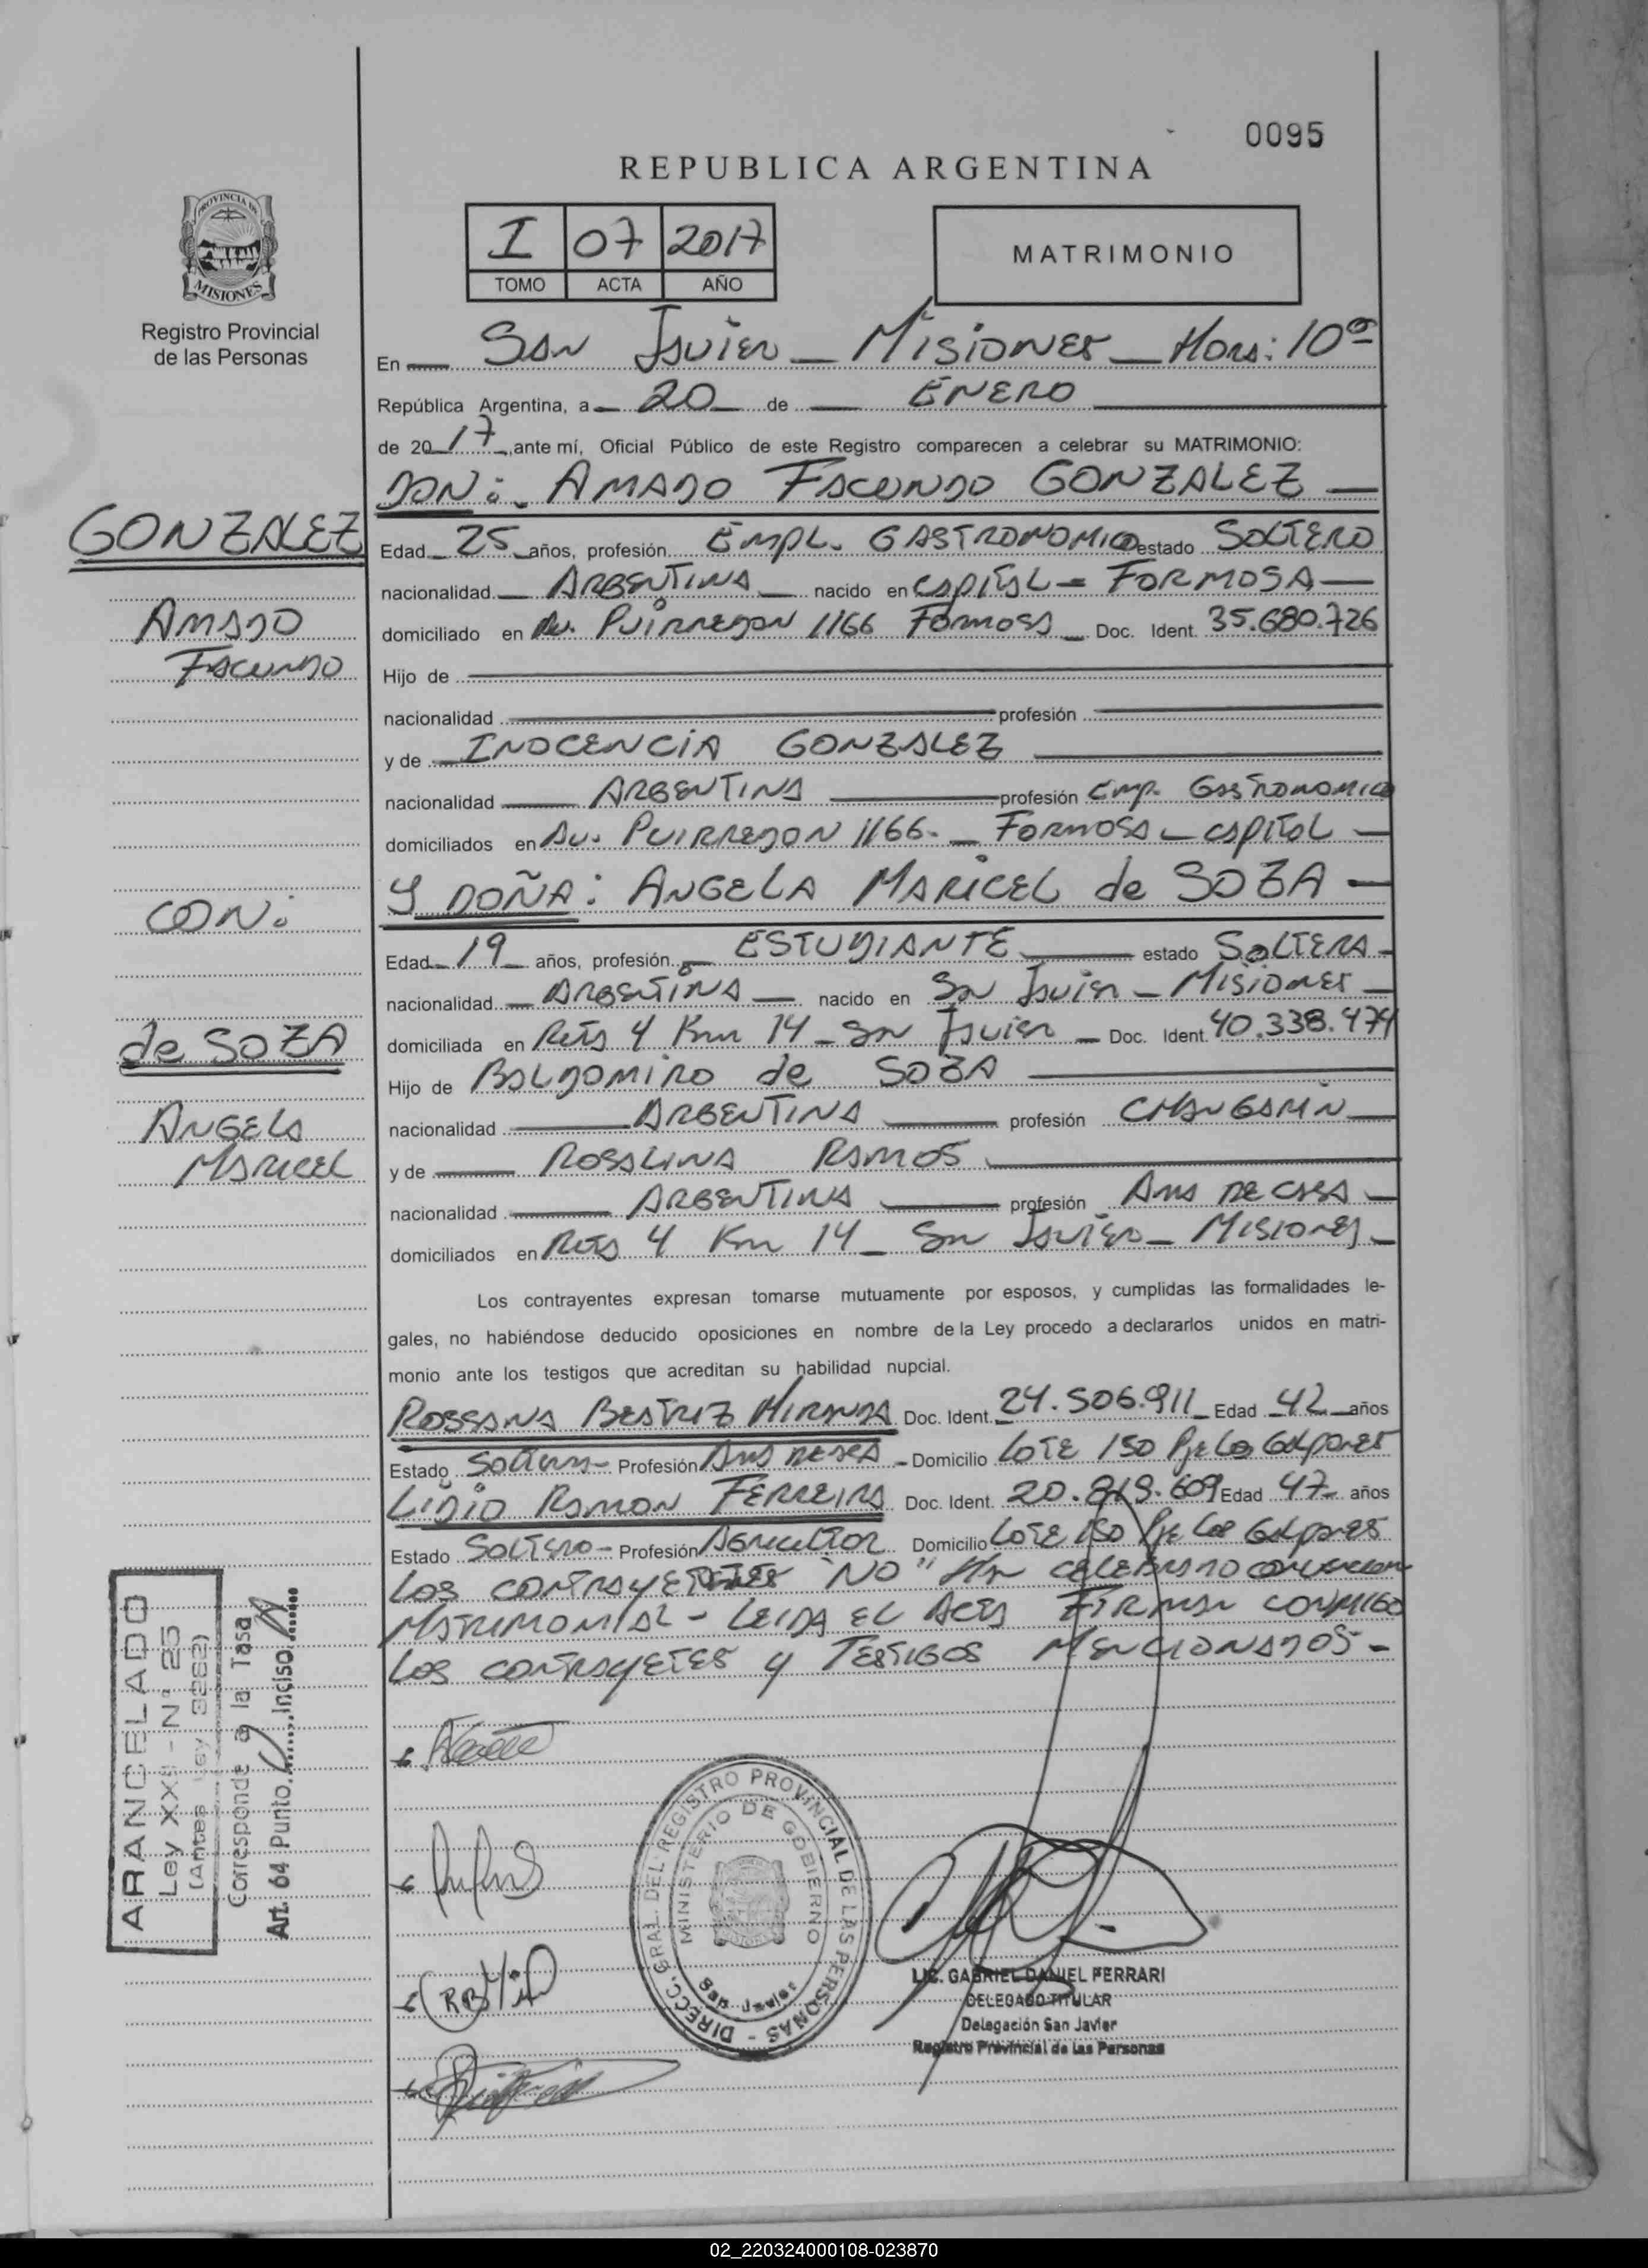 0095
REPUBLICA ARGENTINA
I 07 2017
TOMO ACTA AÑO
MATRIMONIO
PROVINCIA DE
MISIONES
Registro Provincial
de las Personas
En San Javier - Misiones - Hora: 10
República Argentina, a 20 de ENERO
de 2017, ante mí, Oficial Público de este Registro comparecen a celebrar su MATRIMONIO:
DON: AMADO FACUNDO GONZALEZ
Edad 25 años, profesión EMPL. GASTRONOMICO estado SOLTERO
nacionalidad ARGENTINA nacido en CAPITAL - FORMOSA
domiciliado en Av. PUIRREDON 1166 FORMOSA Doc. Ident. 35.680.726
Hijo de
nacionalidad profesión
y de INOCENCIA GONZALEZ
nacionalidad ARGENTINA profesión Emp. GASTRONOMICO
domiciliados en Av. PUIRREDON 1166 - FORMOSA - CAPITAL
Y DOÑA: ANGELA MARICEL de SOZA
Edad 19 años, profesión ESTUDIANTE estado SOLTERA
nacionalidad ARGENTINA nacido en San Javier - Misiones
domiciliada en Ruta 4 Km 14 - San Javier Doc. Ident. 40.338.474
Hijo de BALDOMIRO de SOZA
nacionalidad ARGENTINA profesión CHANGARIN
y de ROSALINA RAMOS
nacionalidad ARGENTINA profesión AMA DE CASA
domiciliados en Ruta 4 Km 14 - San Javier - Misiones
Los contrayentes expresan tomarse mutuamente por esposos, y cumplidas las formalidades le-
gales, no habiéndose deducido oposiciones en nombre de la Ley procedo a declararlos unidos en matri-
monio ante los testigos que acreditan su habilidad nupcial.
ROSSANA BEATRIZ MIRANDA Doc. Ident. 24.506.911 Edad 42 años
Estado Soltera - Profesión AMA DE CASA - Domicilio LOTE 150 Pje Los Galpones
LIDIO RAMON FERREIRA Doc. Ident. 20.819.609 Edad 47 años
Estado SOLTERO - Profesión AGRICULTOR Domicilio LOTE 150 Pje Los Galpones
LOS "NO" HAN CELEBRADO CONVENCION
MATRIMONIAL - LEIDA EL ACTA FIRMAN CONMIGO
LOS CONTRAYETES Y TESTIGOS MENCIONADOS -
GONZALEZ
AMADO
FACUNDO
CON:
de SOZA
ANGELA
MARICEL
ARANCELADO
Ley XXII - Nº 25
(Antes Ley 3262)
Corresponde a la Tasa
Art. 64 Punto Inciso
DIRECC. GRAL. DEL REGISTRO PROVINCIAL DE LAS PERSONAS -
MINISTERIO DE GOBIERNO
San Javier
LIC. GABRIEL DANIEL FERRARI
DELEGADO TITULAR
Delegación San Javier
Registro Provincial de las Personas
02_220324000108-023870